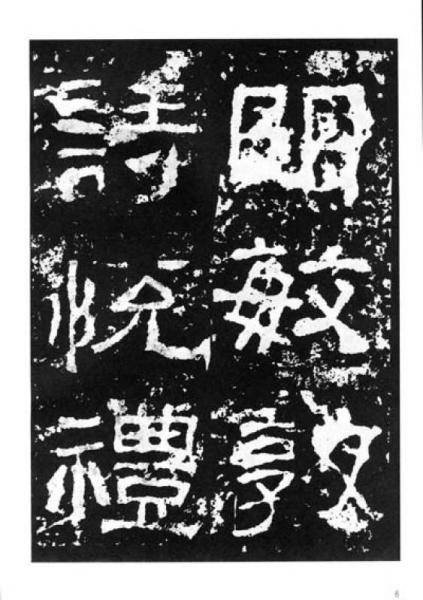 明敏敦
詩悅禮
6